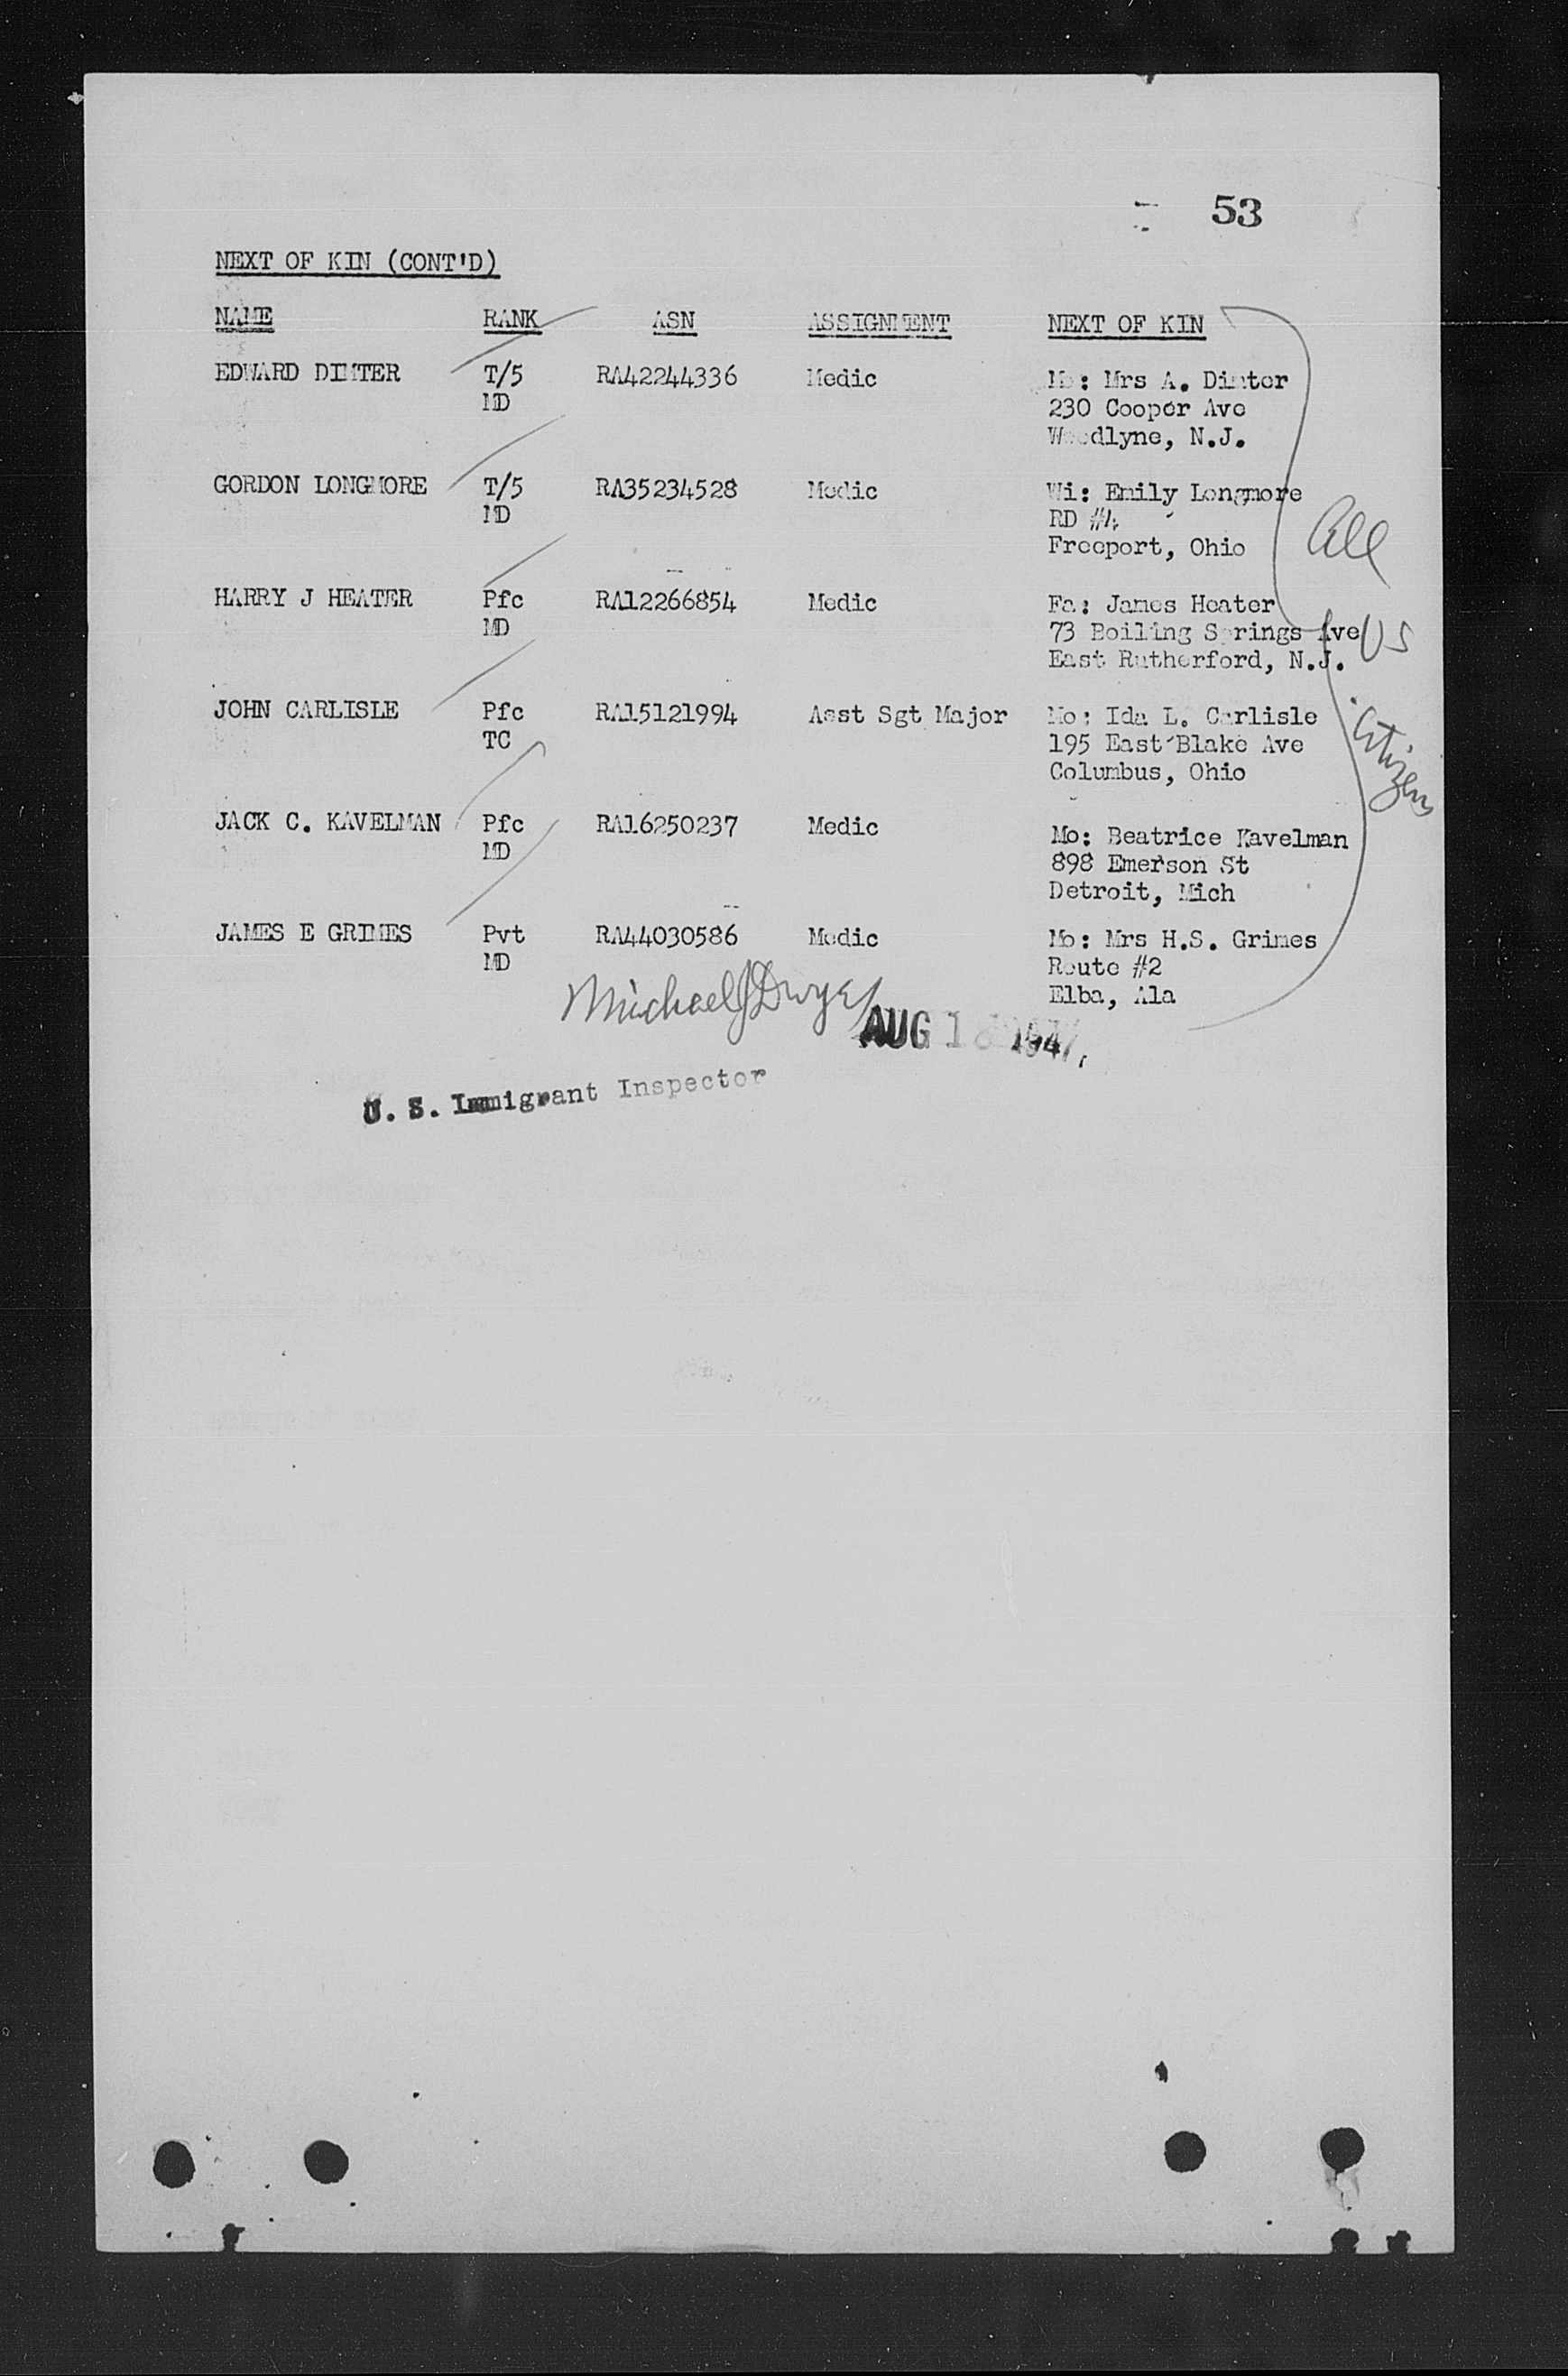 53
NEXT OF KIN (CONT'D)
NAME RANK ASN ASSIGNMENT NEXT OF KIN
EDWARD DIMTER T/5 RA42244336 Medic Mo: Mrs A. Dimter
MD 230 Cooper Ave
Woodlyne, N.J.
GORDON LONGMORE T/5 RA35234528 Medic Wi: Emily Longmore
MD RD #4
Freeport, Ohio
All
HARRY J HEATER Pfc RA12266854 Medic Fa: James Heater
MD 73 Boiling Springs Ave
US
East Rutherford, N.J.
JOHN CARLISLE Pfc RA15121994 Asst Sgt Major Mo: Ida L. Carlisle
TC 195 East Blake Ave
Citizens
Columbus, Ohio
JACK C. KAVELMAN Pfc RA16250237 Medic Mo: Beatrice Kavelman
MD 898 Emerson St
Detroit, Mich
JAMES E GRIMES Pvt RA44030586 Medic Mo: Mrs H.S. Grimes
MD Route #2
Elba, Ala
Michael J Dwyer
AUG 18 1947
U. S. Immigrant Inspector